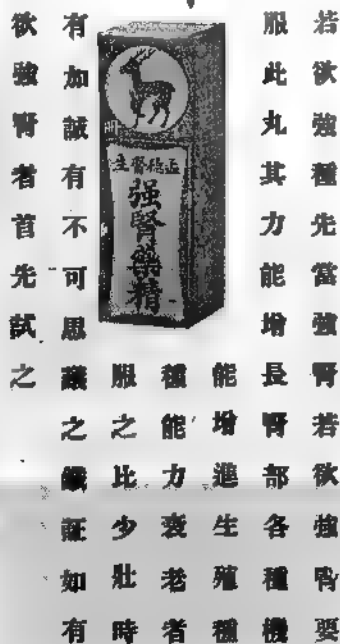 若欲強種先當強腎若欲強腎要
服此丸其力能增長腎部各種機
能增進生殖種
種能力衰老者
服之比少壯時
有加誠有不可思議之鐵証如有
欲強腎者首先試之
强腎藥精